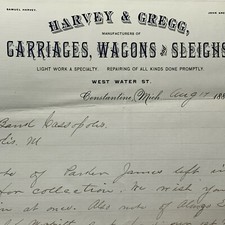 SAMUEL HARVEY.
JOHN GRE
HARVEY & GREGG,
MANUFACTURERS OF
CARRIAGES, WAGONS AND SLEIGHS
LIGHT WORK A SPECIALTY. REPAIRING OF ALL KINDS DONE PROMPTLY.
WEST WATER ST.
Constantine, Mich Aug 188
Band Cassopolis
lis. M
te of Parker James left in
for collection. We wish you
in at once. Also note of